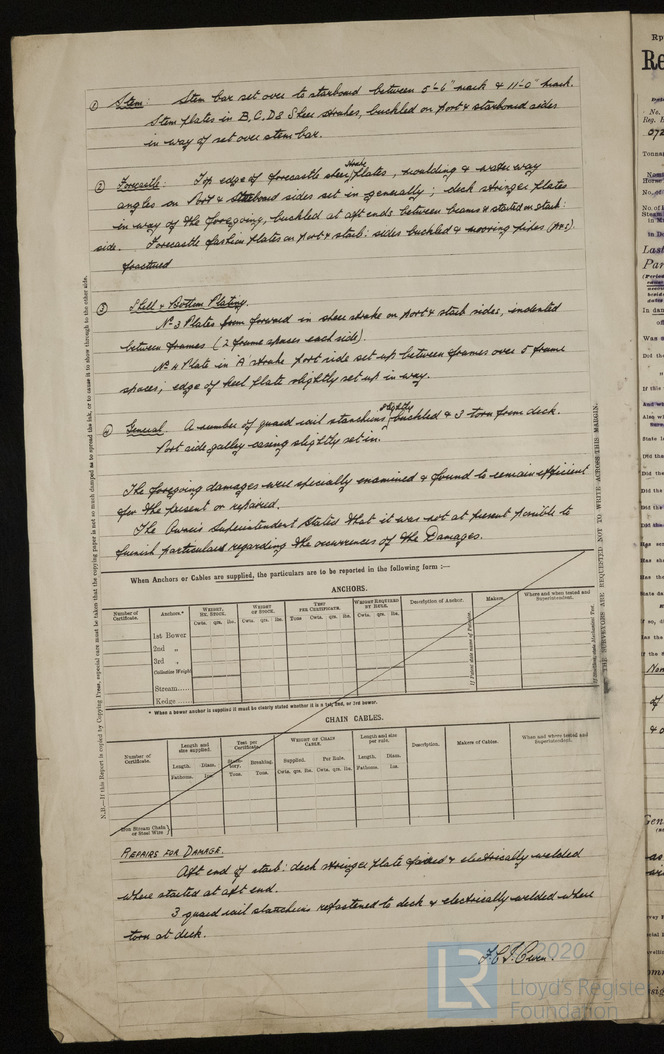 ① Stem: Stem bar set over to starboard between 5'-6" mark & 11'-0" mark.
Stem plates in B, C, D & Sheer strakes, buckled on port & starboard sides
in way of set over stem bar.
② Forecastle: Top edge of forecastle sheer strake plates, moulding & water way
angles on Port & Starboard sides set in generally; deck stringer plates
in way of the foregoing, buckled at aft ends between beams & started on starb:
side. Forecastle fashion plates on port & starb: sides buckled & mooring pipes (P&S)
fractured
③ Shell & Bottom Plating.
No 3 Plates from forward in sheer strake on port & starb sides, indented
between frames (2 frame spaces each side).
No 4 Plate in 'A' strake port side set up between frames over 5 frame
spaces; edge of keel plate slightly set up in way.
④ General. A number of guard rail stanchions slightly buckled & 3 torn from deck.
Port side galley casing slightly set in.
The foregoing damages were specially examined & found to remain efficient
for the present or repaired.
The Owner's Superintendent stated that it was not at present possible to
furnish particulars regarding the occurrences of the Damages.
When Anchors or Cables are supplied, the particulars are to be reported in the following form :—
ANCHORS.
Number of Certificate. Anchors.* Weight, Ex. Stock. Weight of Stock. Test per Certificate. Weight Required by Rule. Description of Anchor. Makers. Where and when tested and Superintendent.
Cwts. qrs. lbs. Cwts. qrs. lbs. Tons Cwts. qrs. lbs. Cwts. qrs. lbs.
1st Bower
2nd "
3rd "
Collective Weight
Stream
Kedge
* When a bower anchor is supplied it must be clearly stated whether it is a 1st, 2nd, or 3rd bower.
CHAIN CABLES.
Number of Certificate. Length and size supplied. Test per Certificate. Weight of Chain Cable. Length and size per rule. Description. Makers of Cables. When and where tested and Superintendent.
Length. Diam. Statutory. Breaking. Supplied. Per Rule. Length. Diam.
Fathoms. Ins. Tons. Tons. Cwts. qrs. lbs. Cwts. qrs. lbs. Fathoms. Ins.
Iron Stream Chain or Steel Wire
REPAIRS FOR DAMAGE.
Aft end of starb: deck stringer plate faired & electrically welded
where started at aft end.
3 guard rail stanchions refastened to deck & electrically welded where
torn at deck.
N.B.—If this Report is copied by Copying Press, especial care must be taken that the copying paper is not so much damped as to spread the ink, or to cause it to show through to the other side.
THE SURVEYORS ARE REQUESTED NOT TO WRITE ACROSS THIS MARGIN.
© 2020
LR
Lloyd's Register
Foundation